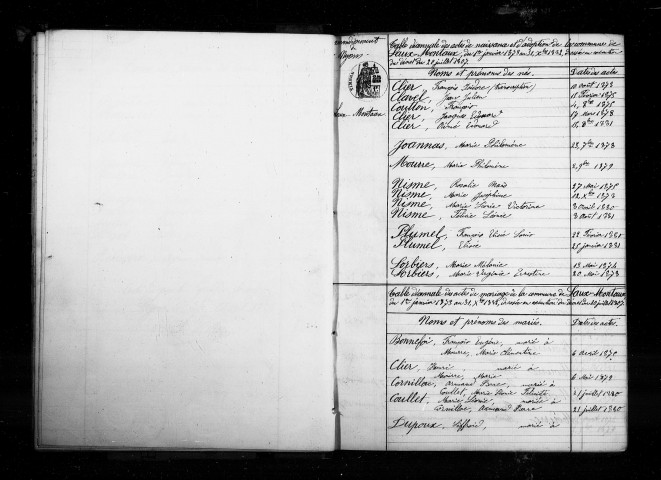 Arrondissement
Nyons
TIMBRE
Saux Montaux
Table décennale des actes de naissance et d'adoption de la commune de
Saux-Montaux, du 1er janvier 1873 au 31 Xbre 1882, dressée en exécution
du décret du 20 juillet 1807.
Noms et prénoms des nés. Date des actes
Clier, François Isidore (transcription) 10 août 1873
Clavel, Jean Julien 15 février 1875
Coullon, François 4 8bre 1875
Clier, Jacques Edouard 17 mars 1878
Clier, Edouard 1881
Joannas, Marie Philomène 23 7bre 1873
Mourre, Marie Philomène 9bre 1879
Nisme, Rosalie 27 Mai 1875
Nisme, Marie Joséphine 12 Xbre 1873
Nisme, Marie Louise Victorine 3 août 1880
Nisme, 3 Août 1881
Plumel, François Elisée Louis 22 février 1880
Plumel, Elisée 25 janvier 1881
Sorbiers, Marie Mélanie 13 Mai 1874
Sorbiers, Marie Virginie Ernestine 20 Mai 1873
Table décennale des actes de mariage de la commune de Saux-Montaux
du 1er janvier 1873 au 31 Xbre 1882, dressée en exécution du décret du 20 juillet 1807
Noms et prénoms des mariés. Date des actes.
Bonnefoi, François Eugène, marié à
Mourre, Marie Clémentine 6 avril 1875
Clier, Henri, marié à
Mourre, Marie 6 Mai 1874
Cornillac, Armand Pierre marié à
Coullet, Marie Louise 21 juillet 1880
Coullet, Marie Louise, mariée à
Cornillac, Armand Pierre 21 juillet 1880
Dupoux, Siffroid, marié à